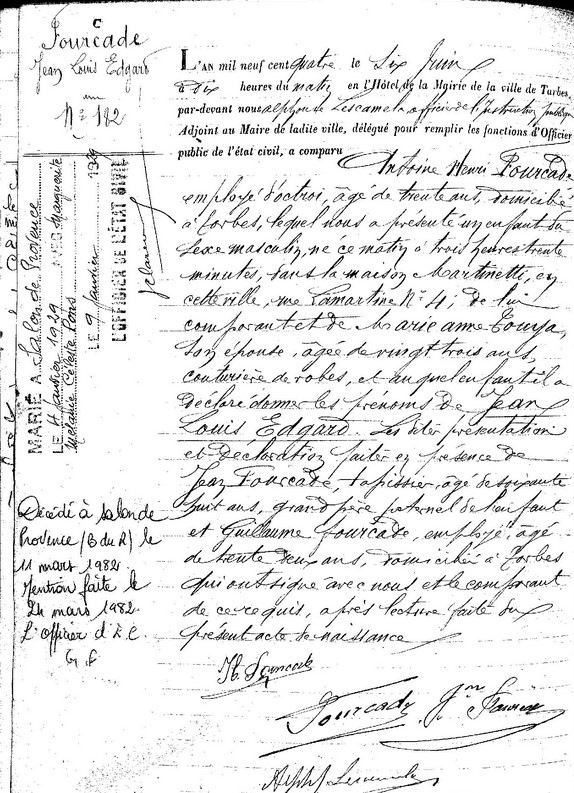 Fourcade
Jean Louis Edgard
Nº 182
L'AN mil neuf cent quatre le Six Juin
à dix heures du matin en l'Hôtel de la Mairie de la ville de Tarbes,
par-devant nous alphonse Lescamela officier de l'Instruction publique
Adjoint au Maire de ladite ville, délégué pour remplir les fonctions d'Officier
public de l'état civil, a comparu
Antoine Henri Fourcade
employé d'octroi, âgé de trente ans, domicilié
à Tarbes, lequel nous a présenté un enfant du
sexe masculin, né ce matin à trois heures trente
minutes, dans la maison Martinetti, en
cette ville, rue Lamartine Nº 4; de lui
comparant et de Marie Anne
son épouse, âgée de vingt trois ans,
couturière de robes, et auquel enfant il a
déclaré donner les prénoms de Jean
Louis Edgard. Les dites présentation
et déclaration faites en présence de
Jean Fourcade, tapissier, âgé de soixante
huit ans, grand père paternel de l'enfant
et Guillaume Fourcade, employé, âgé
de trente deux ans, domiciliés à Tarbes
qui ont signé avec nous et le comparant
de ce requis, après lecture faite du
présent acte de naissance
MARIÉ A Salon de Provence
LE 4 Janvier 1929 AVEC Marguerite
Mélanie Céleste Pons
LE 9 Janvier 1929
L'OFFICIER DE L'ÉTAT CIVIL
Décédé à Salon de
Provence (B du R) le
11 mars 1982.
Mention faite le
24 mars 1982.
L'Officier d'E.C.
H. Fourcade
Fourcade Jn Fourcade